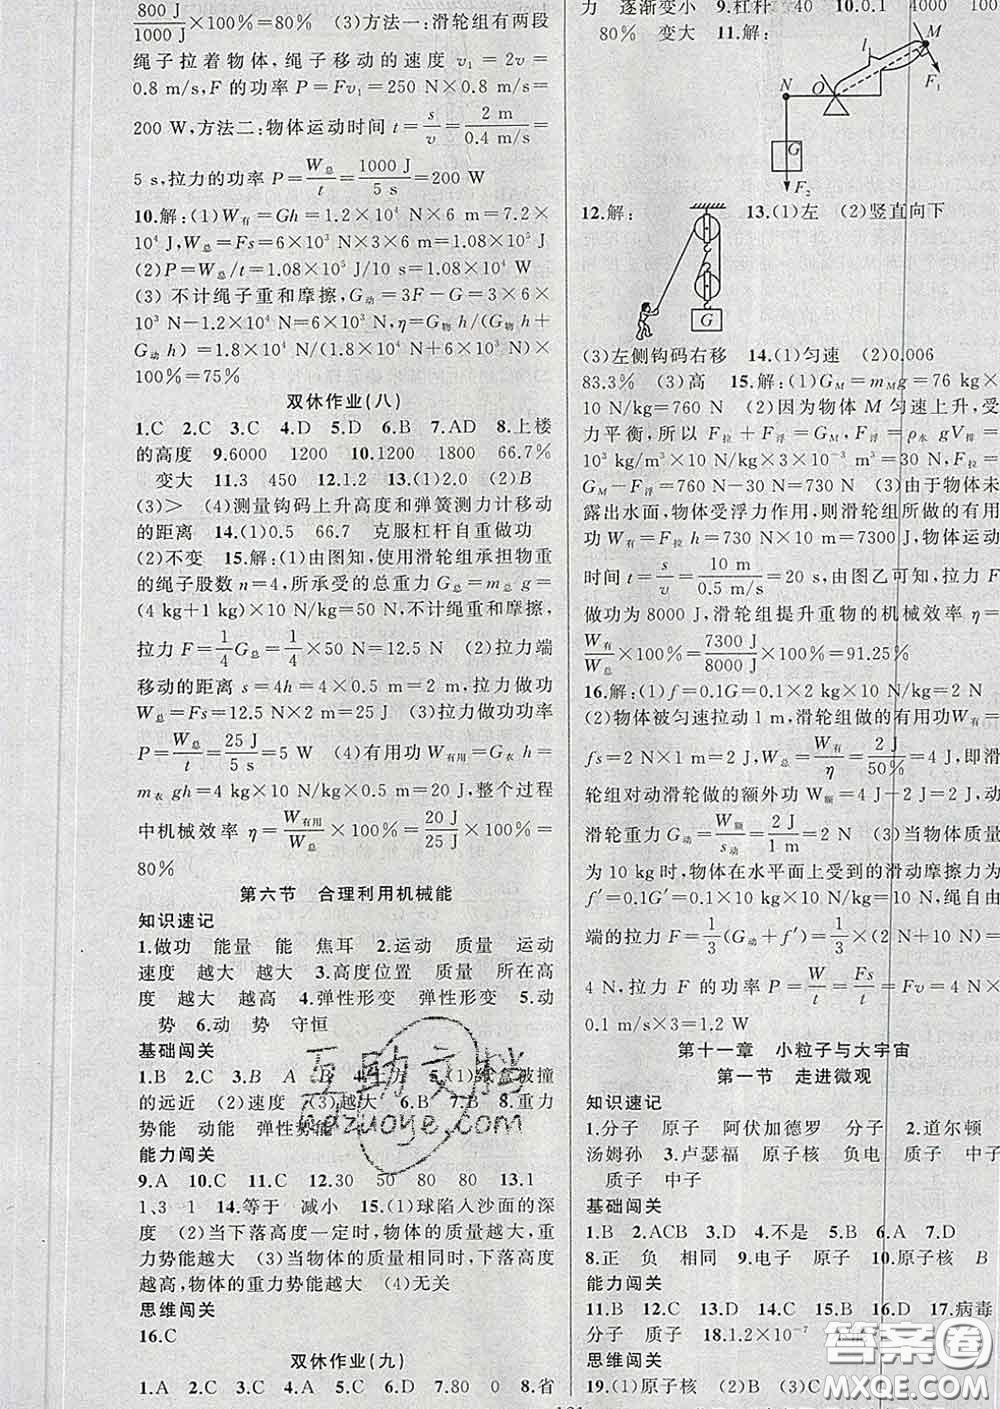 800 J/1000 J×100%=80% (3)方法一:滑轮组有两段
绳子拉着物体,绳子移动的速度 v₁=2v=
0.8 m/s,F 的功率 P=Fv₁=250 N×0.8 m/s=
200 W,方法二:物体运动时间 t=s/v=2 m/0.4 m/s=
5 s,拉力的功率 P=W总/t=1000 J/5 s=200 W
10.解:(1)W有=Gh=1.2×10⁴ N×6 m=7.2×
10⁴ J,W总=Fs=6×10³ N×3×6 m=1.08×10⁵ J
(2)P=W总/t=1.08×10⁵ J/10 s=1.08×10⁴ W
(3)不计绳子重和摩擦,G动=3F-G=3×6×
10³ N-1.2×10⁴ N=6×10³ N,η=G物 h/(G物 h+
G动 h)=1.8×10⁴ N/(1.8×10⁴ N+6×10³ N)×
100%=75%
双休作业(八)
1.C 2.C 3.C 4.D 5.D 6.B 7.AD 8.上楼
的高度 9.6000 1200 10.1200 1800 66.7%
变大 11.3 450 12.1.2 13.(1)2.0 (2)B
(3)> (4)测量钩码上升高度和弹簧测力计移动
的距离 14.(1)0.5 66.7 克服杠杆自重做功
(2)不变 15.解:(1)由图知,使用滑轮组承担物重
的绳子股数 n=4,所承受的总重力 G总=m总 g=
(4 kg+1 kg)×10 N/kg=50 N,不计绳重和摩擦,
拉力 F=1/4 G总=1/4×50 N=12.5 N (2)拉力端
移动的距离 s=4h=4×0.5 m=2 m,拉力做功
W总=Fs=12.5 N×2 m=25 J (3)拉力做功功率
P=W总/t=25 J/5 s=5 W (4)有用功 W有用=G衣 h=
m衣 gh=4 kg×10 N/kg×0.5 m=20 J,整个过程
中机械效率 η=W有用/W总×100%=20 J/25 J×100%=
80%
第六节 合理利用机械能
知识速记
1.做功 能量 能 焦耳 2.运动 质量 运动
速度 越大 越大 3.高度位置 质量 所在高
度 越大 越高 4.弹性形变 弹性形变 5.动
势 6.动 势 守恒
基础闯关
1.B 2.C 3.B A 4.动力 5.(1)球盒被撞
的远近 (2)速度 (3)越大 6.B 7.B 8.重力
势能 动能 弹性势能
能力闯关
9.A 10.C 11.C 12.30 50 80 80 13.1
1、3 1 14.等于 减小 15.(1)球陷入沙面的深
度 (2)当下落高度一定时,物体的质量越大,重
力势能越大 (3)当物体的质量相同时,下落高度
越高,物体的重力势能越大 (4)无关
思维闯关
16.C
双休作业(九)
1.A 2.C 3.C 4.B 5.C 6.D 7.80 0 8.省
力 逐渐变小 9.杠杆 40 10.0.1 4000 100
80% 变大 11.解:
l M O N F₁ G F₂
12.解: 13.(1)左 (2)竖直向下
G
(3)左侧钩码右移 14.(1)匀速 (2)0.006
83.3% (3)高 15.解:(1)G_M=m_M g=76 kg×
10 N/kg=760 N (2)因为物体 M 匀速上升,受
力平衡,所以 F拉+F浮=G_M,F浮=ρ水 gV排=
10³ kg/m³×10 N/kg×3×10⁻³ m³=30 N,F拉=
G_M-F浮=760 N-30 N=730 N (3)由于物体未
露出水面,物体受浮力作用,则滑轮组所做的有用
功 W有=F拉 h=730 N×10 m=7300 J,物体运动
时间 t=s/v=10 m/0.5 m/s=20 s,由图乙可知,拉力 F
做功为 8000 J,滑轮组提升重物的机械效率 η=
W有/W总×100%=7300 J/8000 J×100%=91.25%
16.解:(1)f=0.1G=0.1×2 kg×10 N/kg=2 N
(2)物体被匀速拉动 1 m,滑轮组做的有用功W有=
fs=2 N×1 m=2 J,W总=W有/η=2 J/50%=4 J,即滑
轮组对动滑轮做的额外功 W额=4 J-2 J=2 J,动
滑轮重力 G动=W额/s动=2 J/1 m=2 N (3)当物体质量
为 10 kg 时,物体在水平面上受到的滑动摩擦力为
f′=0.1G=0.1×10 kg×10 N/kg=10 N,绳自由
端的拉力 F=1/3(G动+f′)=1/3×(2 N+10 N)=
4 N,拉力 F 的功率 P=W/t=Fs/t=Fv=4 N×
0.1 m/s×3=1.2 W
第十一章 小粒子与大宇宙
第一节 走进微观
知识速记
1.分子 原子 阿伏加德罗 分子 2.道尔顿
汤姆孙 3.卢瑟福 原子核 负电 质子 中子
质子 中子
基础闯关
1.B 2.ACB 3.D 4.不是 5.B 6.A 7.D
8.正 负 相同 9.电子 原子 10.原子核 B
能力闯关
11.B 12.C 13.D 14.C 15.B 16.D 17.病毒
分子 质子 18.1.2×10⁻⁷ 不能
思维闯关
19.(1)原子核 (2)B (3)C
互助文档
hdzuoye.com
答案圈
MXQE.COM